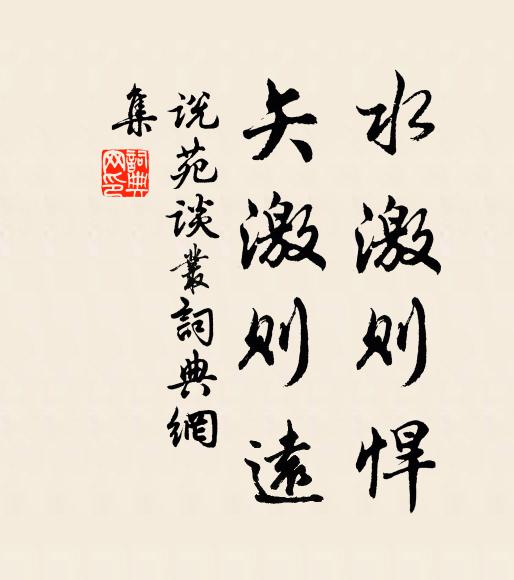 水激则悍
矢激则遠
説苑谈叢詞典網
集
詞典
网印